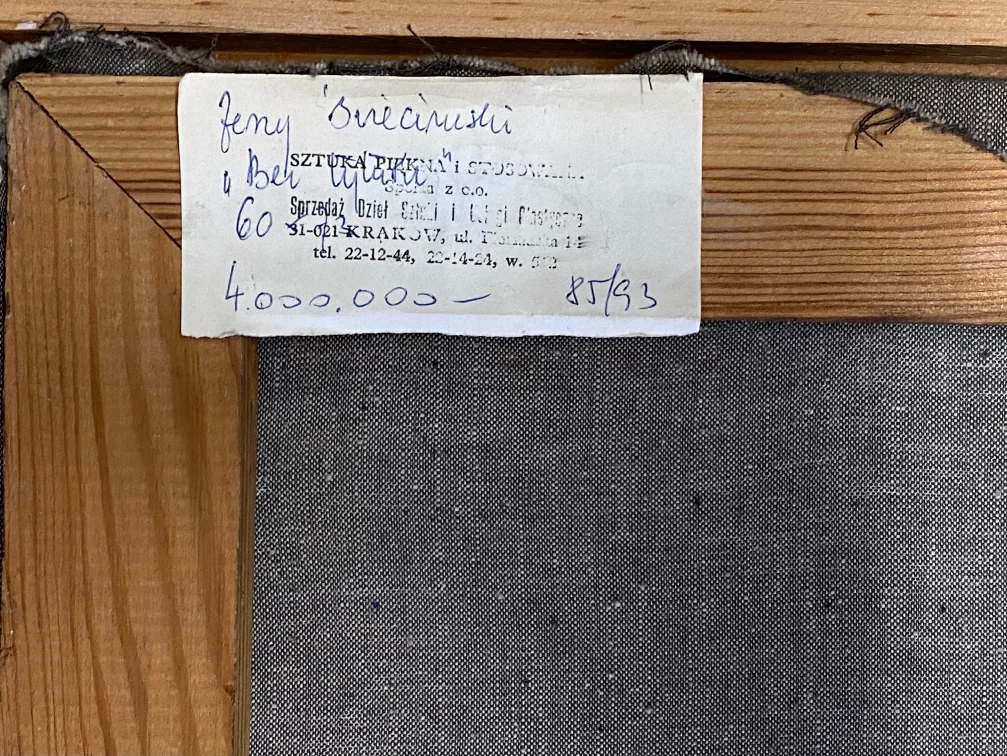 Jerzy Świeciński
SZTUKA PIĘKNA i STOSOWANA
„Bez tytułu"
Spółka z o.o.
Sprzedaż Dzieł Sztuki i Usługi Plastyczne
60 x 73
31-021 KRAKÓW, ul.
tel. 22-12-44, 22-14-24, w.
4.000.000 — 85/93